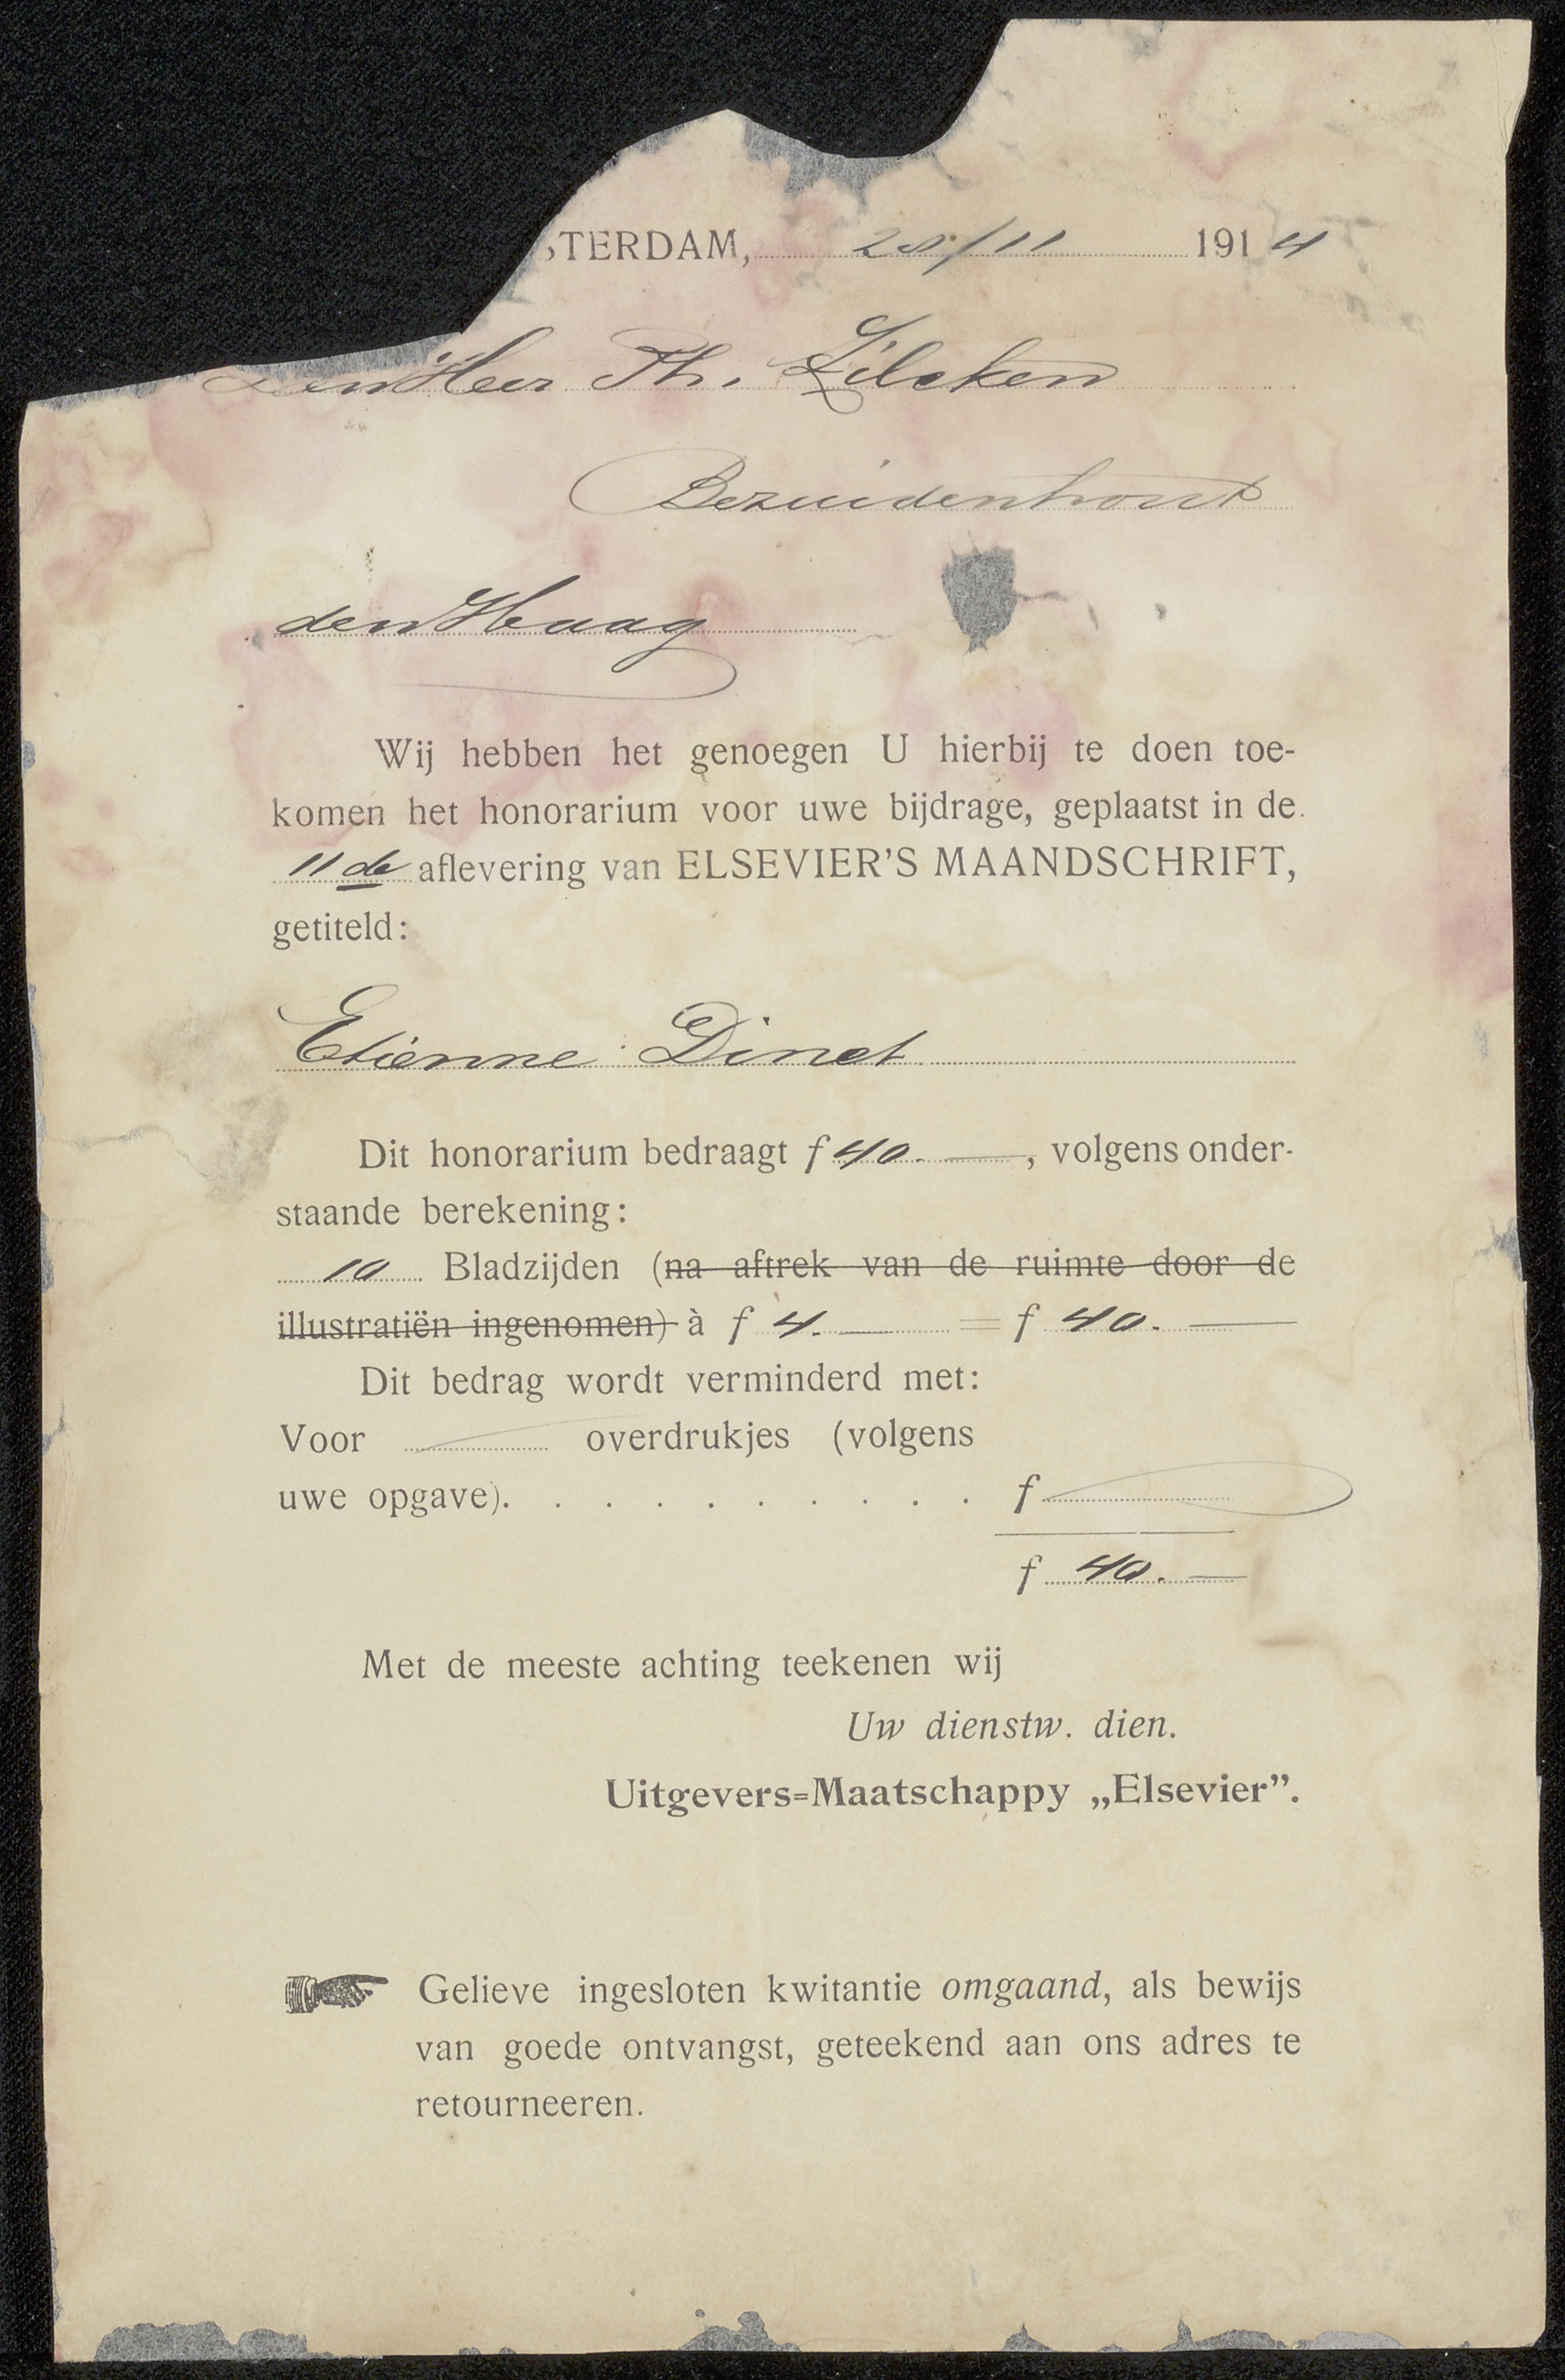 STERDAM, 28/11 1914
den Heer Th. Zilcken
Bezuidenhout
den Haag
Wij hebben het genoegen U hierbij te doen toe-
komen het honorarium voor uwe bijdrage, geplaatst in de
11de aflevering van ELSEVIER'S MAANDSCHRIFT,
getiteld:
Etienne Dinet
Dit honorarium bedraagt f 40. —, volgens onder-
staande berekening:
10 Bladzijden (na aftrek van de ruimte door de
illustratiën ingenomen) à f 4. — = f 40. —
Dit bedrag wordt verminderd met:
Voor overdrukjes (volgens
uwe opgave). . . . . . . . . . f
f 40. —
Met de meeste achting teekenen wij
Uw dienstw. dien.
Uitgevers=Maatschappy „Elsevier”.
Gelieve ingesloten kwitantie omgaand, als bewijs
van goede ontvangst, geteekend aan ons adres te
retourneeren.